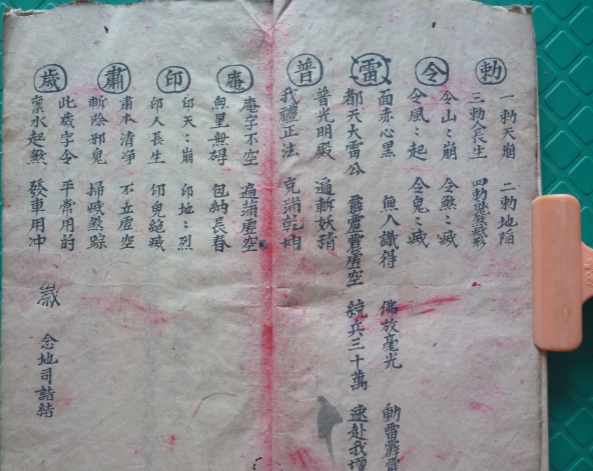 勅
一勅天崩 二勅地陷
三勅人長生 四勅鬼煞滅形
令
令山:崩 令煞:滅
令風:起 令鬼:滅
雷
面赤心黑 無人識得 佛放毫光 動雷霹靂
都天大雷公 霹靂震虛空 統兵三十萬 速赴我壇
普
普光明殿 過斬妖精
我禮正法 克滿乾坤
庵
庵字不空 遍蒲虛空
無里無碍 包納長春
印
印天:崩 印地:烈
印人長生 印鬼絕滅
肅
肅本清淨 不立虛空
斬除邪鬼 掃滅煞踪
歲
此歲字令 平常用的
稟水起煞 發車用冲 歲 念地司誥結